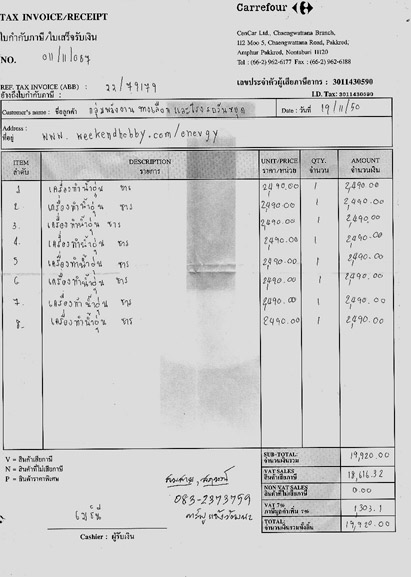 Carrefour
TAX INVOICE/RECEIPT
ใบกำกับภาษี/ใบเสร็จรับเงิน
NO. 011/11/087
CenCar Ltd., Chaengwattana Branch,
112 Moo 5, Chaengwattana Road, Pakkred,
Amphur Pakkred, Nontaburi 11120
Tel : (66-2) 962-6177 Fax : (66-2) 962-6188
REF. TAX INVOICE (ABB) : 22/79179
อ้างถึงใบกำกับภาษี :
เลขประจำตัวผู้เสียภาษีอากร : 3011430590
I.D. Tax: 3011430590
Customer's name : ชื่อลูกค้า กลุ่มพลังงาน ทางเลือก
Date : วันที่ 19/11/50
Address :
ที่อยู่ www.weekendhobby.com/energy
ITEM DESCRIPTION UNIT/PRICE QTY. AMOUNT
ลำดับ รายการ ราคา/หน่วย จำนวน จำนวนเงิน
1 เครื่องทำน้ำอุ่น ชาร 2,490.00 1 2,490.00
2. เครื่องทำน้ำอุ่น ชาร 2,490.00 1 2,490.00
3. เครื่องทำน้ำอุ่น ชาร 2,490.00 1 2,490.00
4. เครื่องทำน้ำอุ่น ชาร 2,490.00 1 2,490.00
5 เครื่องทำน้ำอุ่น ชาร 2,490.00 1 2,490.00
6 เครื่องทำน้ำอุ่น ชาร 2,490.00 1 2,490.00
7. เครื่องทำน้ำอุ่น ชาร 2,490.00 1 2,490.00
8. เครื่องทำน้ำอุ่น ชาร 2,490.00 1 2,490.00
V = สินค้าเสียภาษี
N = สินค้าที่ไม่เสียภาษี
P = สินค้าราคาพิเศษ
SUB-TOTAL: 19,920.00
จำนวนเงินรวม
VAT SALES 18,616.32
สินค้าเสียภาษี
NON VAT SALES 0.00
สินค้าที่ไม่เสียภาษี
VAT 7% 1,303.1
ภาษีมูลค่าเพิ่ม 7%
TOTAL: 19,920.00
จำนวนเงินรวมทั้งสิ้น
083-2373759
คาร์ฟู แจ้งวัฒนะ
Cashier : ผู้รับเงิน